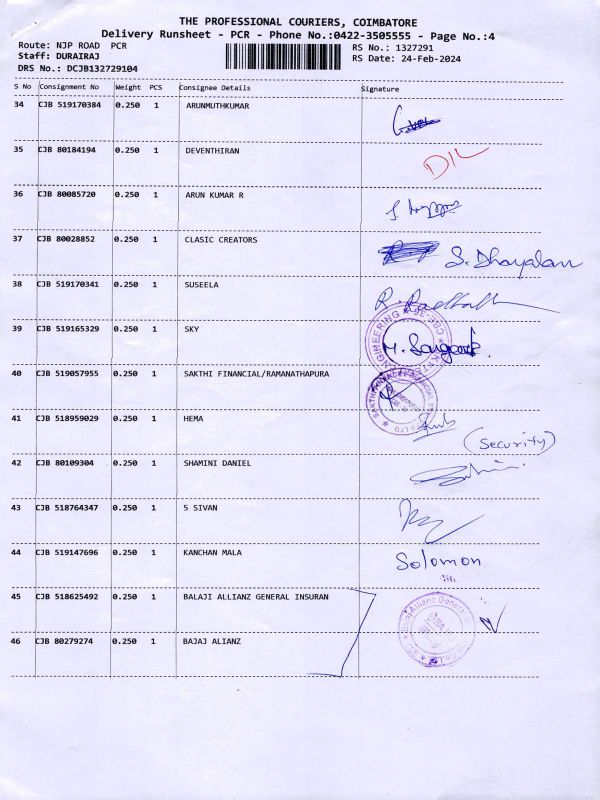 THE PROFESSIONAL COURIERS, COIMBATORE
Delivery Runsheet - PCR - Phone No.:0422-3505555 - Page No.:4
Route: NJP ROAD PCR
RS No.: 1327291
Staff: DURAIRAJ
RS Date: 24-Feb-2024
DRS No.: DCJB132729104
S No Consignment No Weight PCS Consignee Details Signature
34 CJB 519170384 0.250 1 ARUNMUTHKUMAR
35 CJB 80184194 0.250 1 DEVENTHIRAN
36 CJB 80085720 0.250 1 ARUN KUMAR R
37 CJB 80028852 0.250 1 CLASIC CREATORS S. Dhayalan
38 CJB 519170341 0.250 1 SUSEELA
39 CJB 519165329 0.250 1 SKY
40 CJB 519057955 0.250 1 SAKTHI FINANCIAL/RAMANATHAPURA
41 CJB 518959029 0.250 1 HEMA (Security)
42 CJB 80109304 0.250 1 SHAMINI DANIEL
43 CJB 518764347 0.250 1 S SIVAN
44 CJB 519147696 0.250 1 KANCHAN MALA Solomon
45 CJB 518625492 0.250 1 BALAJI ALLIANZ GENERAL INSURAN
46 CJB 80279274 0.250 1 BAJAJ ALLIANZ